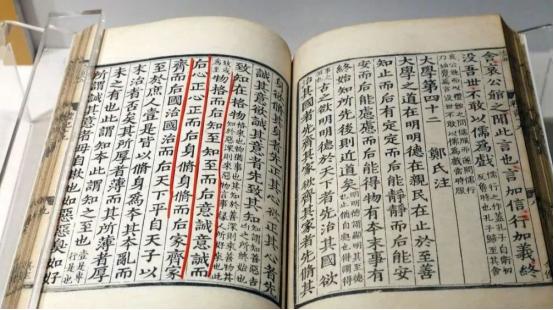 舍哀公館之聞此言也言加信行加義終
沒吾世不敢以儒為戲
大學第四十二 鄭氏注
大學之道在明明德在親民在止於至善
知止而后有定定而后能靜靜而后能安
安而后能慮慮而后能得物有本末事有
終始知所先後則近道矣
古之欲明明德於天下者先治其國欲
治其國者先齊其家欲齊其家者先脩其
身欲脩其身者先正其心欲正其心者先
誠其意欲誠其意者先致其知知謂知善惡吉凶之所終始也
致知在格物格來也物猶事也其知於善深則來善物其知於惡深則來惡物言事緣人所好來也此致或為至
物格而后知至知至而后意誠意誠而
后心正心正而后身脩身脩而后家齊家
齊而后國治國治而后天下平自天子以
至於庶人壹是皆以脩身為本其本亂而
末治者否矣其所厚者薄而其所薄者厚
未之有也此謂知本此謂知之至也壹是專行是也
所謂誠其意者毋自欺也如惡惡臭如好